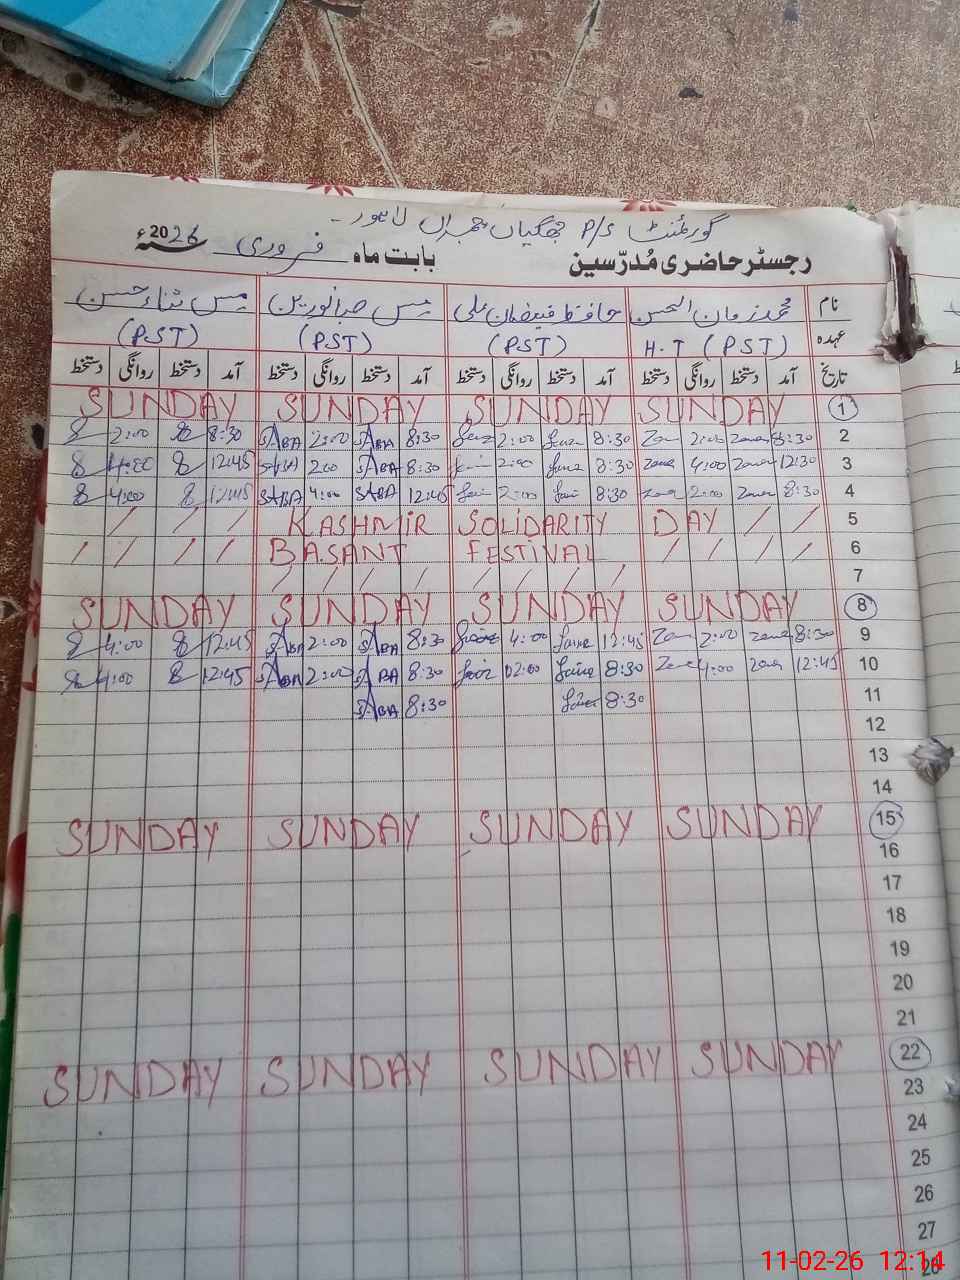 گورنمنٹ P/S جھگیاں لاہور۔
رجسٹر حاضری مُدرّسین بابت ماہ فروری سنہ 2026ء
نام محمد زمان الحسن حافظ فیضان علی مس صبا نورین مس ثناء حسن
عہدہ H.T (PST) (PST) (PST) (PST)
تاریخ آمد دستخط روانگی دستخط آمد دستخط روانگی دستخط آمد دستخط روانگی دستخط آمد دستخط روانگی دستخط
SUNDAY SUNDAY SUNDAY SUNDAY 1
2:00 8:30 SABA 2:00 SABA 8:30 2:00 8:30 2:00 8:30 2
4:00 12:45 SABA 2:00 SABA 8:30 2:00 8:30 4:00 12:30 3
4:00 12:45 SABA 4:00 SABA 12:45 2:00 8:30 2:00 8:30 4
/ / / KASHMIR SOLIDARITY DAY / / 5
/ / / / BASANT FESTIVAL / / / / 6
/ / / / / / / / 7
SUNDAY SUNDAY SUNDAY SUNDAY 8
4:00 12:45 SABA 2:00 SABA 8:30 4:00 12:45 2:00 8:30 9
4:00 12:45 SABA 2:00 SABA 8:30 02:00 8:30 4:00 12:45 10
SABA 8:30 8:30 11
12
13
14
SUNDAY SUNDAY SUNDAY SUNDAY 15
16
17
18
19
20
21
SUNDAY SUNDAY SUNDAY SUNDAY 22
23
24
25
26
27
28
11-02-26 12:14